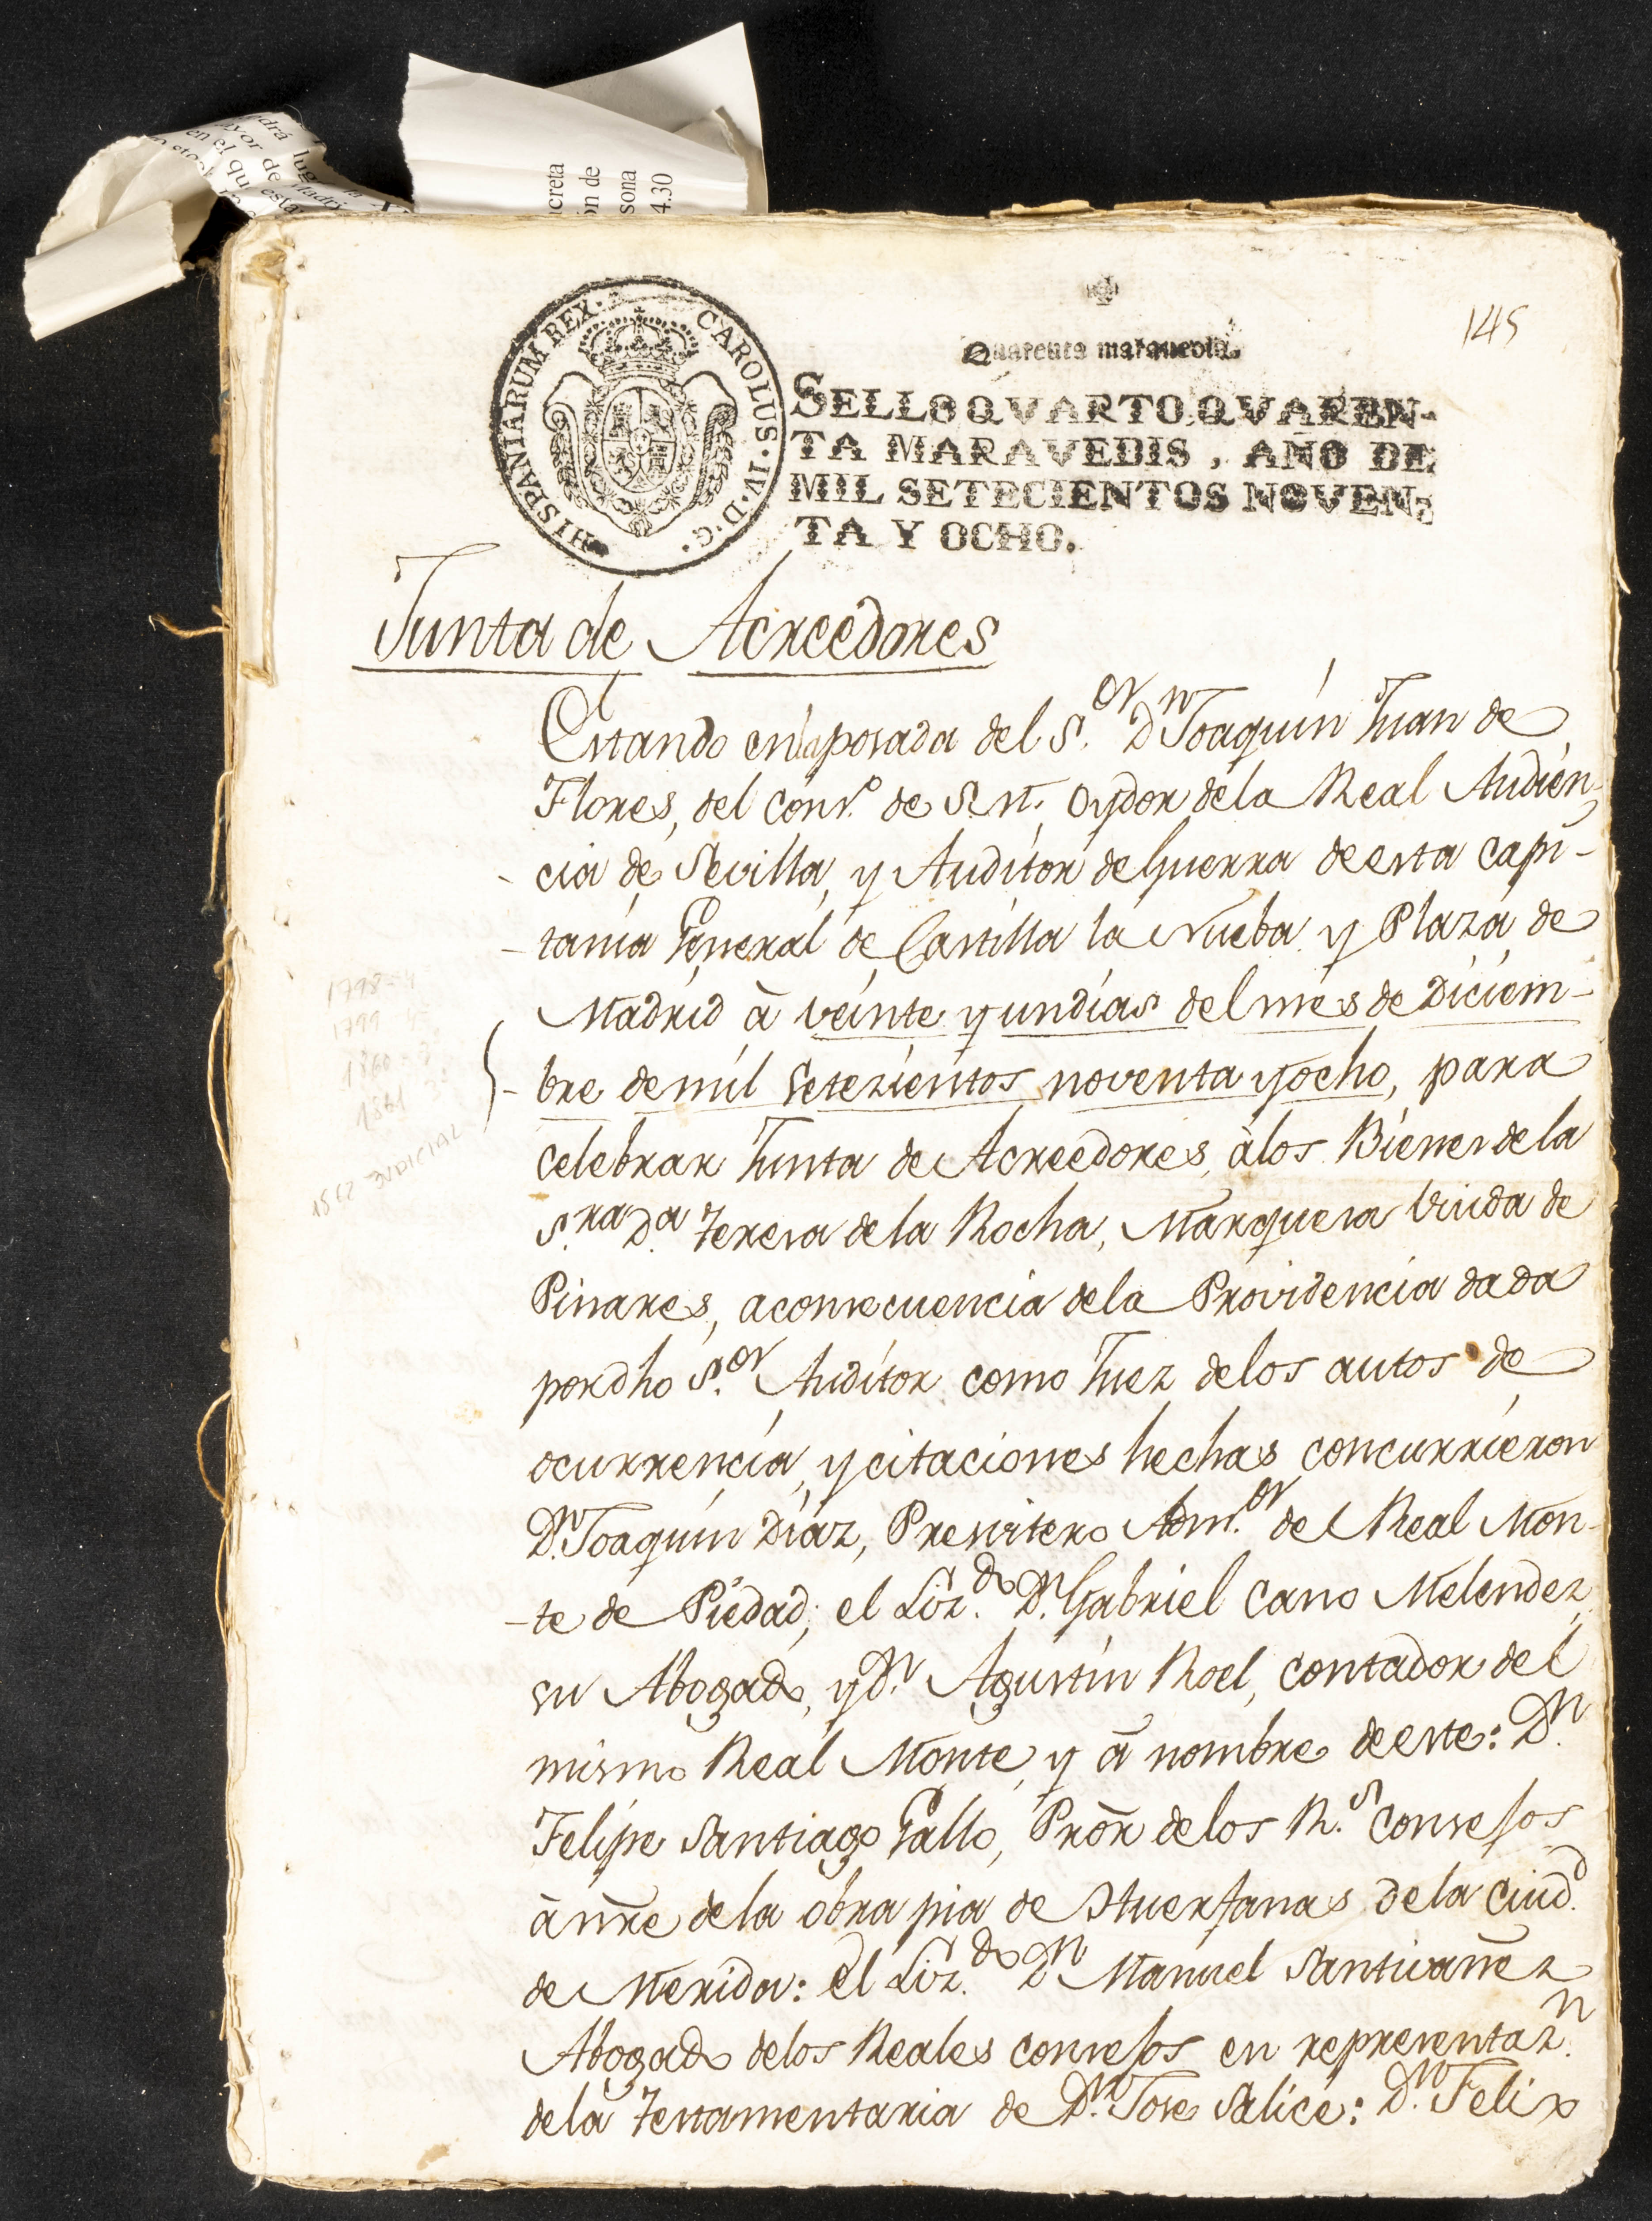 145
HISPANIARUM REX. CAROLUS. IV. D. G.
Quarenta maravedis.
SELLO QVARTO, QVAREN-
TA MARAVEDIS, AÑO DE
MIL SETECIENTOS NOVEN-
TA Y OCHO.
Junta de Acreedores
Estando en la posada del S.or Dn Joaquin Juan de
Flores, del cons.o de S.M. Oydor de la Real Audien-
cia de Sevilla, y Auditor de Guerra de esta capi-
-tania General de Castilla la Nueba y Plaza de
Madrid à veinte y un dias del mes de Diciem-
-bre de mil setezientos noventa y ocho, para
celebrar Junta de Acreedores, à los Bienes de la
S.ra D.a Teresa de la Rocha, Marquesa Viuda de
Pinares, a consecuencia de la Providencia dada
por dho S.or Auditor como Juez de los autos de
ocurrencia, y citaciones hechas concurrieron
D.n Joaquin Diaz, Presvitero Adm.or del Real Mon-
-te de Piedad; el Liz.do D.n Gabriel Cano Melendez,
su Abogado, y D.n Agustin Roel, contador del
mismo Real Monte, y à nombre de este: D.n
Felipe Santiago Gallo, Prõr de los R.s Consejos
à nr̃e de la obra pia de Huerfanas de la Ciud.d
de Merida: el Liz.do D.n Manuel Santivañez
Abogado de los Reales consejos en representaz.n
de la Testamentaria de D.n Jose Salice: D.n Felix
1798-4
1799
1860
1861
1862 JUDICIAL
creta
ón de
sona
4.30
drá lug
yor de
en el qu
esta